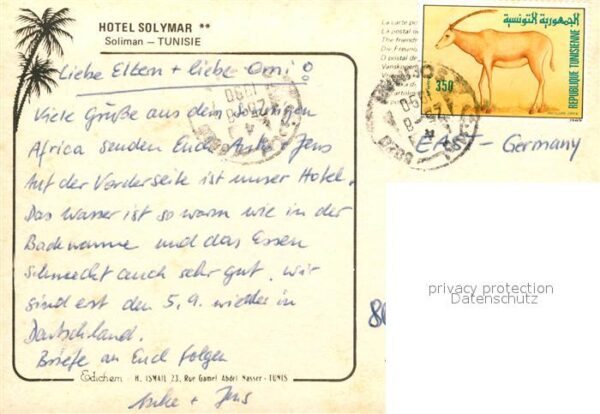 HOTEL SOLYMAR **
Soliman – TUNISIE
Liebe Eltern + liebe Omi!
Viele Grüße aus dem sonnigen
Africa senden Euch Anke + Jens
Auf der Vorderseite ist unser Hotel.
Das Wasser ist so warm wie in der
Badewanne und das Essen
schmeckt auch sehr gut. Wir
sind erst den 5.9. wieder in
Deutschland.
Briefe an Euch folgen
Edichem H. ISMAIL 23, Rue Gamel Abdel Nasser - TUNIS
Anke + Jens
La carte po
La postal o
The friend
Die Freun
O postal de
Vanskor
الجمهورية التونسية
REPUBLIQUE TUNISIENNE
350
East - Germany
privacy protection
Datenschutz